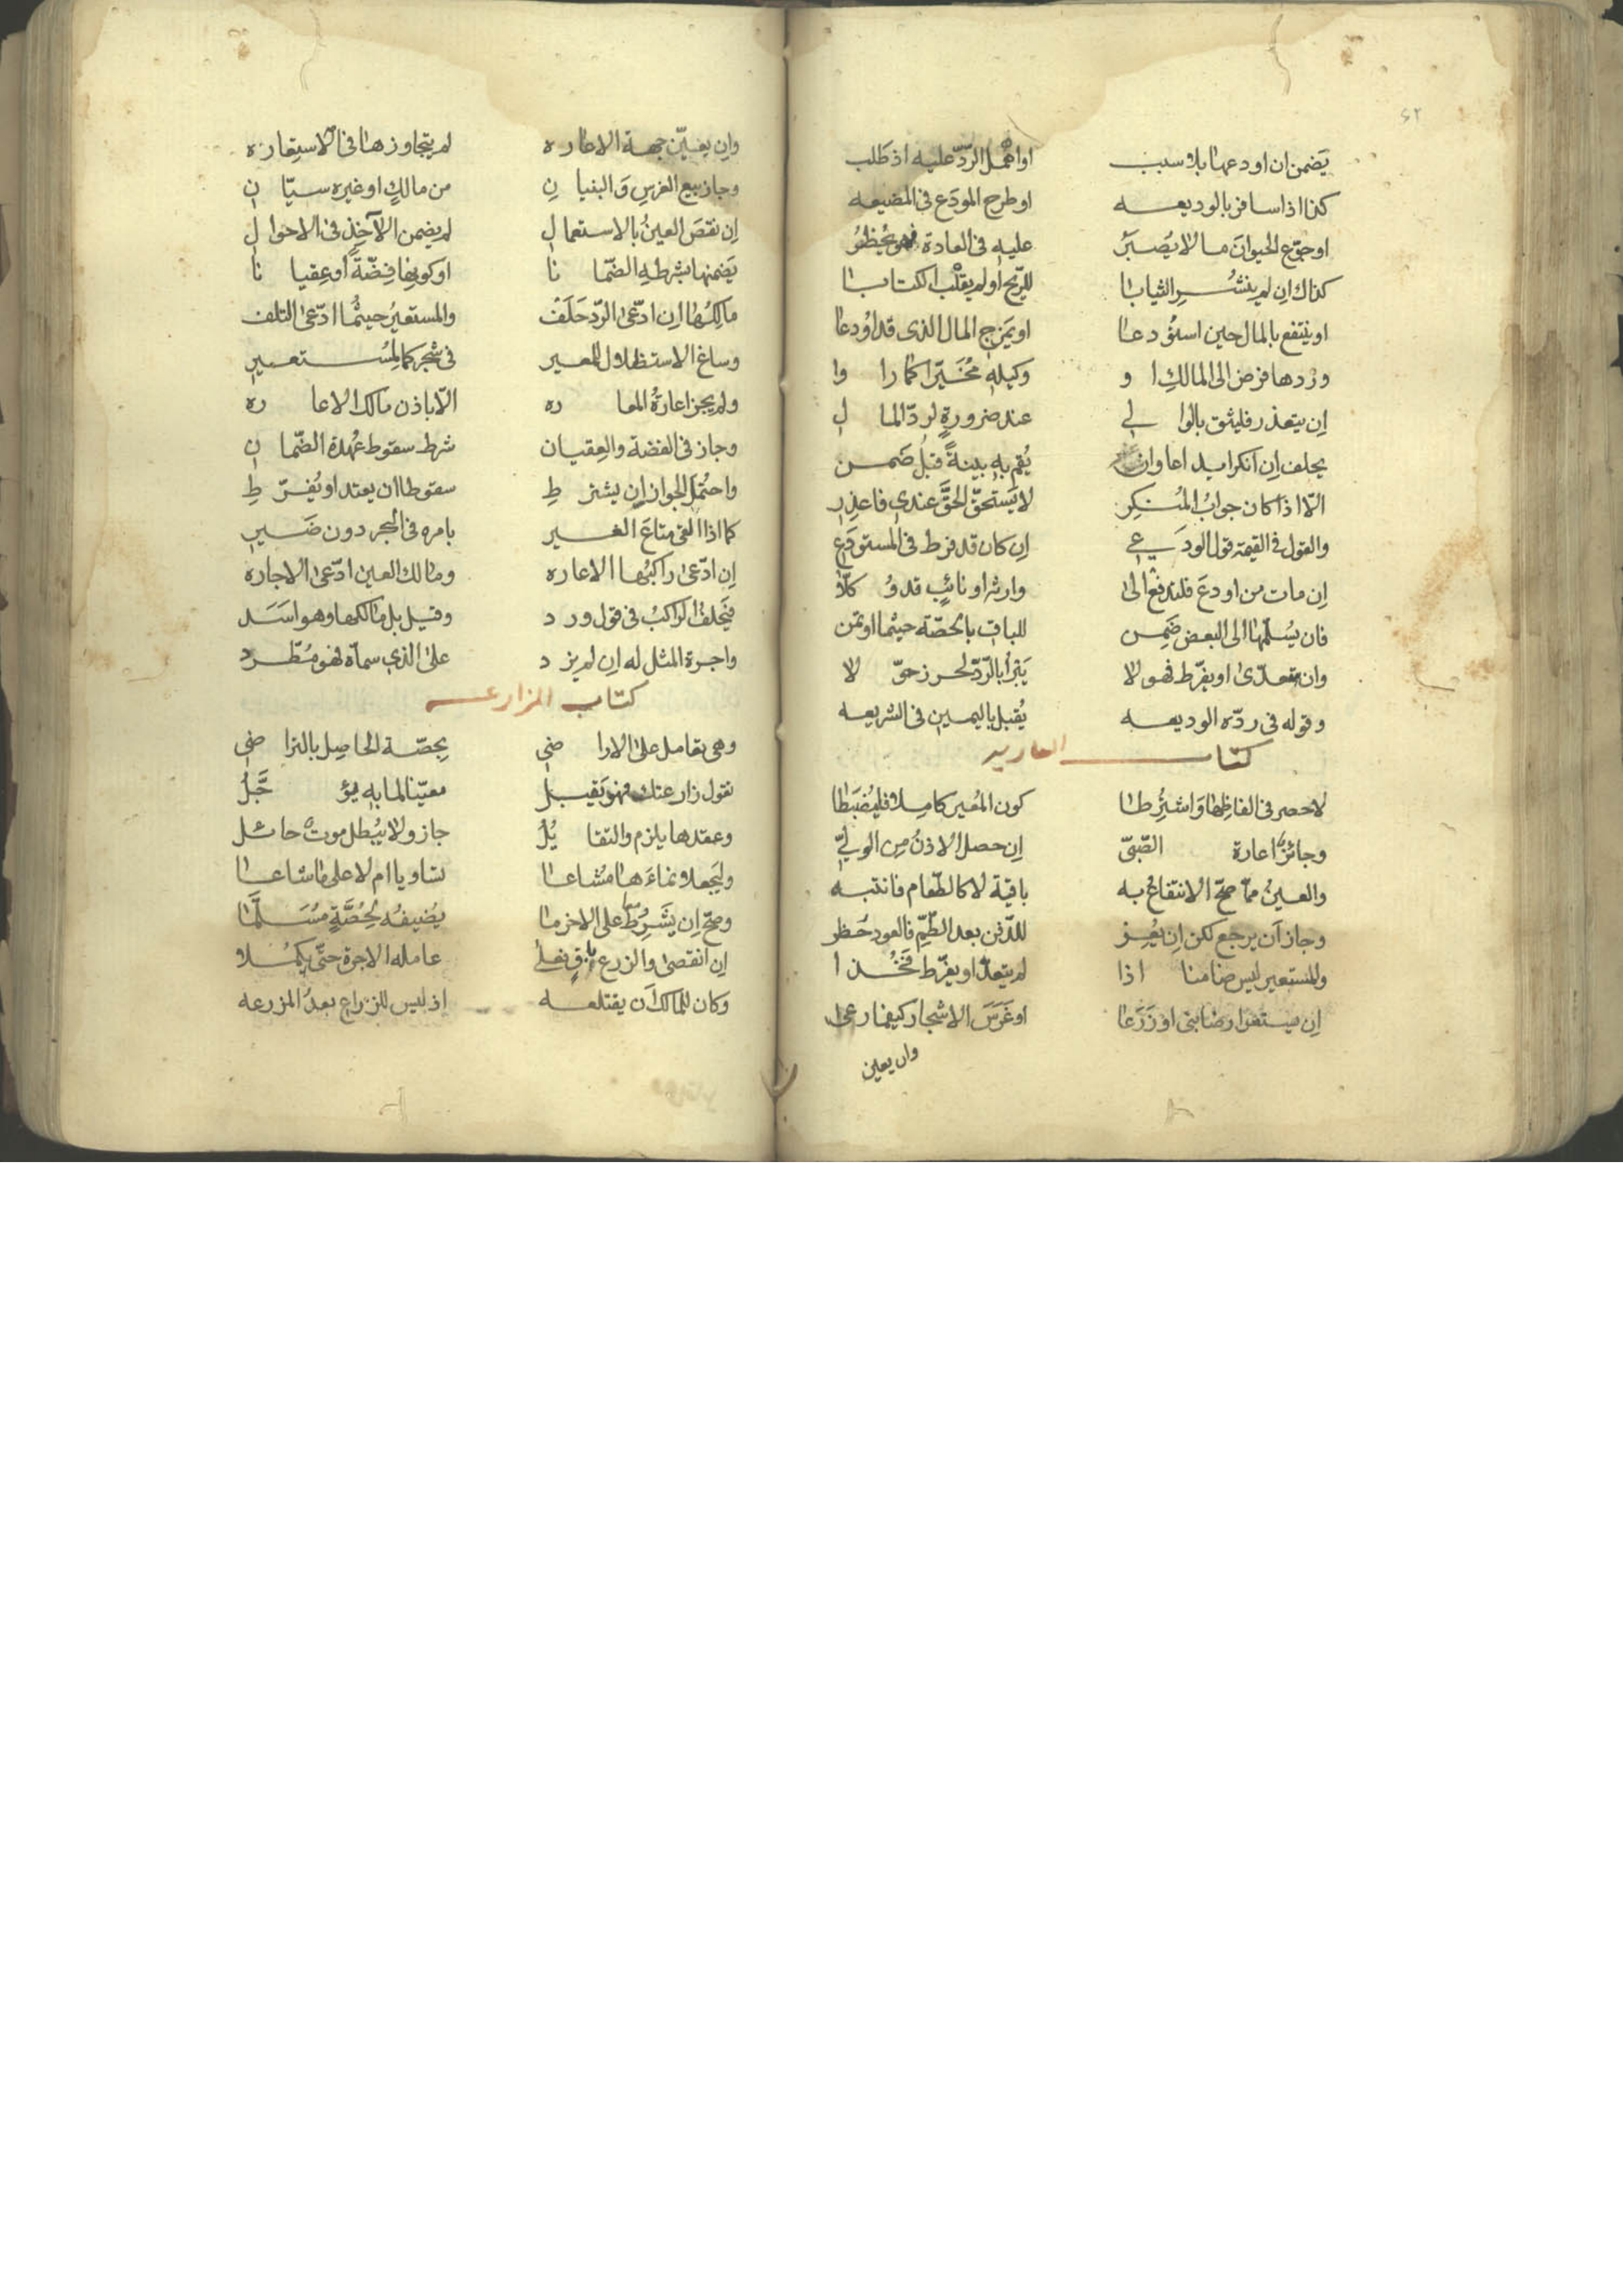 ٤٢
يَضمن ان اودعها بلا سبب اواهمل الردّ عليه اذ طَلب
كذا اذا سافر بالوديعه او طرح المودَع في المضيعه
او جوّع الحيوانَ ما لا يُصبَرُ عليه في العادة فهو يُحظرُ
كذاك اِن لم ينشُرِ الثيابا للرّيح أولم يقلّب الكتابا
او ينتفع بالمال حين استُودعا او يَمزج المال الذى قد اُودعا
وردها فرض الى المالكِ او وكيلهِ مُخَيّرا كما راوا
اِن يتعذر فليثق بالوالي عند ضرورةٍ لردّ المالِ
يحلف اِن انكر ايداعا وان يُقم بهِ بينةً قبلُ ضَمن
الّا اذا كان جوابُ المُنكِرِ لا يَستحقّ الحقَّ عندي فاعذِرِ
والقول في القيمة قول الوديعي اِن كان قد فرط في المستودَعِ
اِن مات من اودعَ فلتدفع الى وارثهِ او نائبٍ قد وُكلّا
فان يُسلّمها الى البعض ضَمِن للباقى بالحصّة حيثما اوتمن
وان تعدّى او يفرّط فهو لا يَبْرأ بالردّ لحرز حوّلا
وقوله في ردّه الوديعه يُقبل باليمين فى الشريعه
كتاب العاريه
لا حصر فى الفاظِها وَاشتُرِطا كون المُعير كاملا فليُضبَطا
وجائزٌ اعارة الصّبىّ اِن حصل الاذنُ مِن الولىّ
والعينُ ممّا صحّ الانتفاعُ به باقية لا كالطّعام فانتبه
وجاز اَن يرجع لكن اِن يُعِر للدّفن بعد الطّمّ فالعود حُظر
وللمستعير ليس ضامنا اذا لم يتعدّ او يفرّط فَخُذا
اِن يستعر ارضا بنى او زَرَعا او غَرَسَ الاشجار كيفما رعى
وان يعين
وان يعيّن جهة الاعاره لم يتجاوزها فى الاستعاره
وجاز بيع الغرسِ وَالبنيانِ من مالكٍ او غيره سيّانِ
اِن نقصَ العينُ بالاستعمالِ لم يضمن الآخِذ فى الاحوالِ
يَضمنها بشرطهِ الضّمانا او كونها فِضّةً أو عِقيانا
مالِكُها اِن ادّعى الردّ حَلَفْ والمستعيرُ حيثُما ادّعى التلف
وساغ الاستظلال للمعير فى شجر كما لِمُستعيرِ
ولم يجز اعارةُ المعاره الّا باذن مالك الاعاره
وجاز فى الفضة والعِقيان شرط سقوط عُهدة الضّمانِ
واحتُمِل الجواز اِن يشترطِ سقوطها ان يعتد او يُفرّطِ
كما اذا القى متاعَ الغير بامره فى البحر دون ضَيرِ
اِن ادّعى راكبُها الاعاره ومالك العين ادّعى الاجاره
فيَحلف الراكبُ فى قول ورد وقيل بل مالكها وهو اسَدَ
واجرة المثل له اِن لم يزد على الذي سماّه فهو مُطّرد
كتاب المزارعه
وهى تعامل على الاراضِى بحِصّة الحاصِل بالتراضِى
نقول زارعتك فهو يَقبل معيّنا لما به يؤجَّلُ
وعقدها يلزم والتقايُلُ جاز ولا يُبطل موت حائل
وليَجعلا نماءَها مُشاعا تساويا ام لا على ما شاعا
وصحّ اِن يَشرِط على الاخر ما يُضيفُه لحُصَّةٍ مُسَلَّما
اِن انقضى والزرع باقٍ فعلى عامله الاجرة حتّى يَكمُلا
وكان للمالك اَن يقتلعه اذ ليس للزراع بعدُ المزرعه